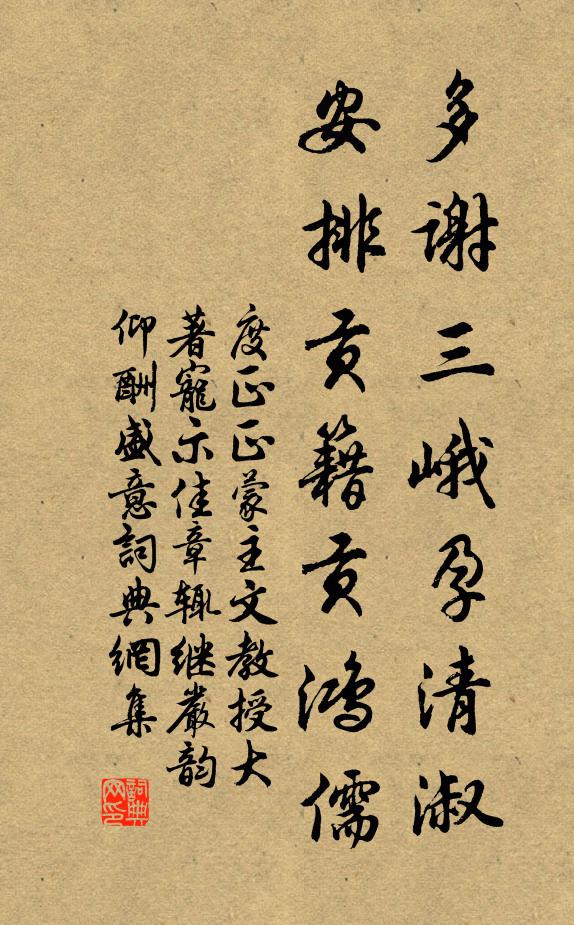 多谢三峨孕清淑
安排贡籍贡鸿儒
度正正蒙主文教授大
著寵示佳章輙继嚴韵
仰酬盛意詞典網集
詞典
网印